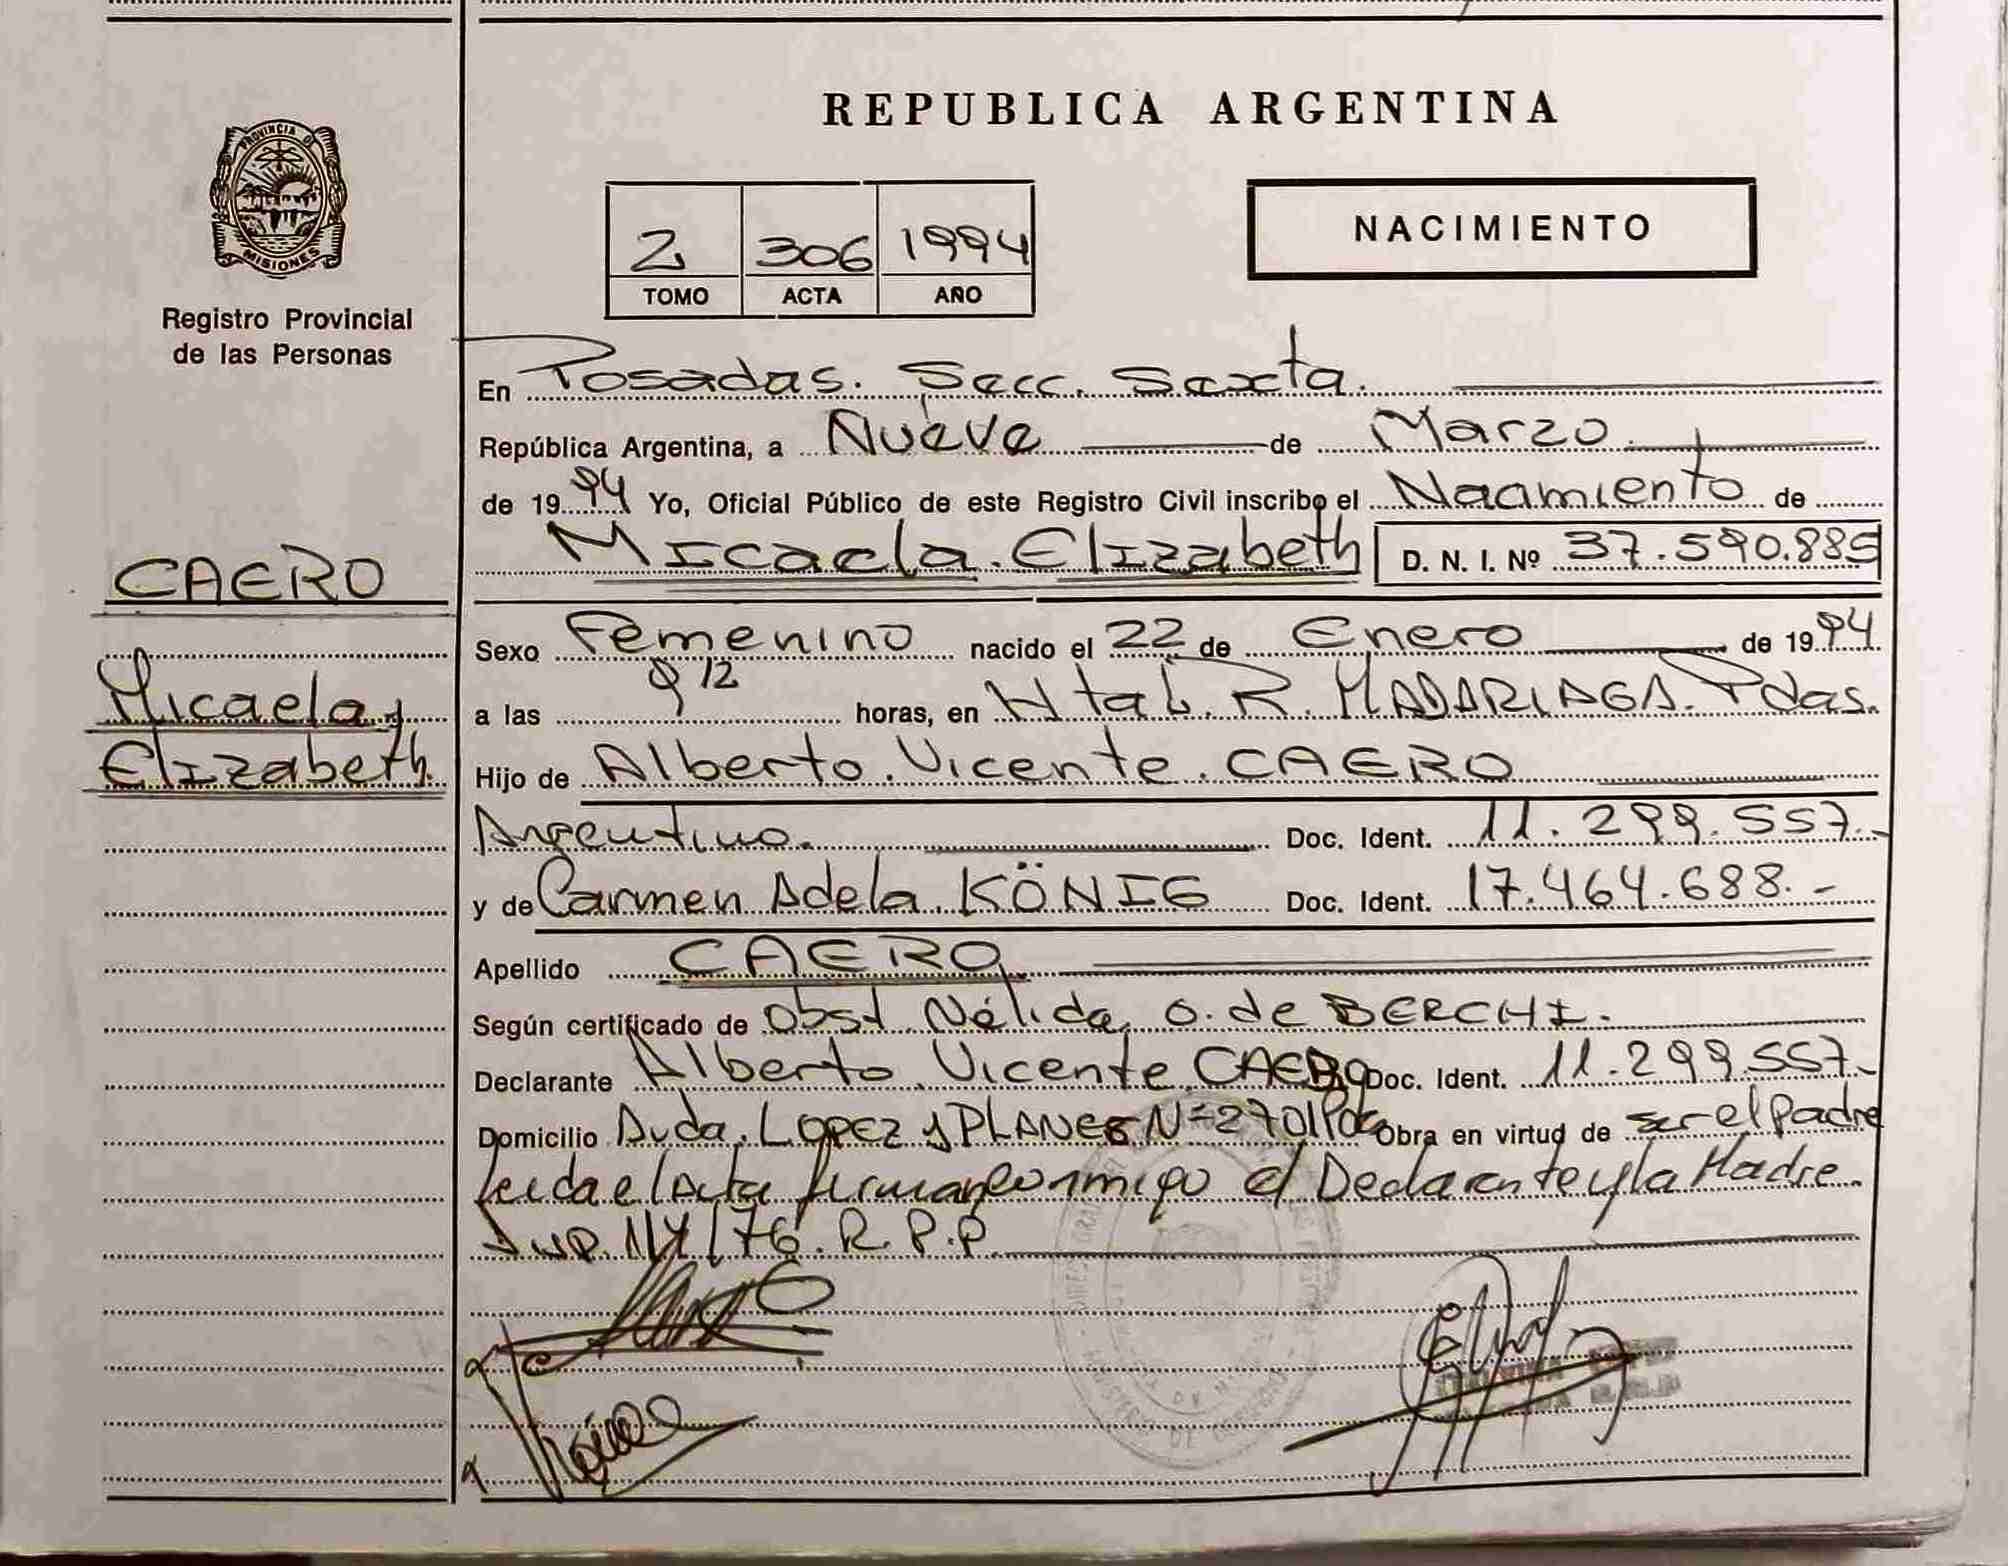 REPUBLICA ARGENTINA
PROVINCIA D
MISIONES
Registro Provincial
de las Personas
2 306 1994
TOMO ACTA AÑO
NACIMIENTO
En Posadas. Secc. Sexta.
República Argentina, a Nueve de Marzo
de 1994 Yo, Oficial Público de este Registro Civil inscribo el Nacimiento de
Micaela Elizabeth D. N. I. Nº 37.590.885
CAERO
Micaela
Elizabeth.
Sexo Femenino nacido el 22 de Enero de 1994
a las 9 12 horas, en Htal. R. MADARIAGA. Pdas.
Hijo de Alberto Vicente CAERO
Argentino. Doc. Ident. 11.299.557.-
y de Carmen Adela KÖNIG Doc. Ident. 17.464.688.-
Apellido CAERO
Según certificado de Obst Nélida O. de BERCHI.
Declarante Alberto Vicente CAERO Doc. Ident. 11.299.557.-
Domicilio Avda. LOPEZ y PLANES Nº 2701 Pdas Obra en virtud de ser el Padre
Leida el Acta firman conmigo el Declarante y la Madre.
1/4/76. R. P. P.